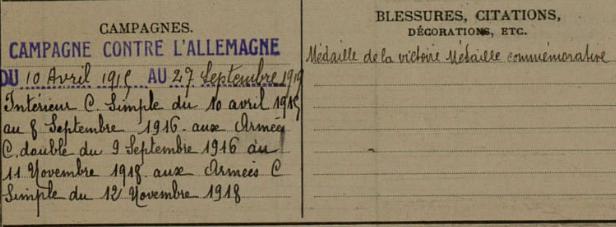 CAMPAGNES.
CAMPAGNE CONTRE L'ALLEMAGNE
DU 10 Avril 1915 AU 27 Septembre 1919
Intérieur C. Simple du 10 avril 1915
au 8 Septembre 1916. aux Armées
C. double du 9 Septembre 1916 au
11 Novembre 1918. aux Armées C
Simple du 12 Novembre 1918
BLESSURES, CITATIONS,
DÉCORATIONS, ETC.
Médaille de la victoire Médaille commémorative